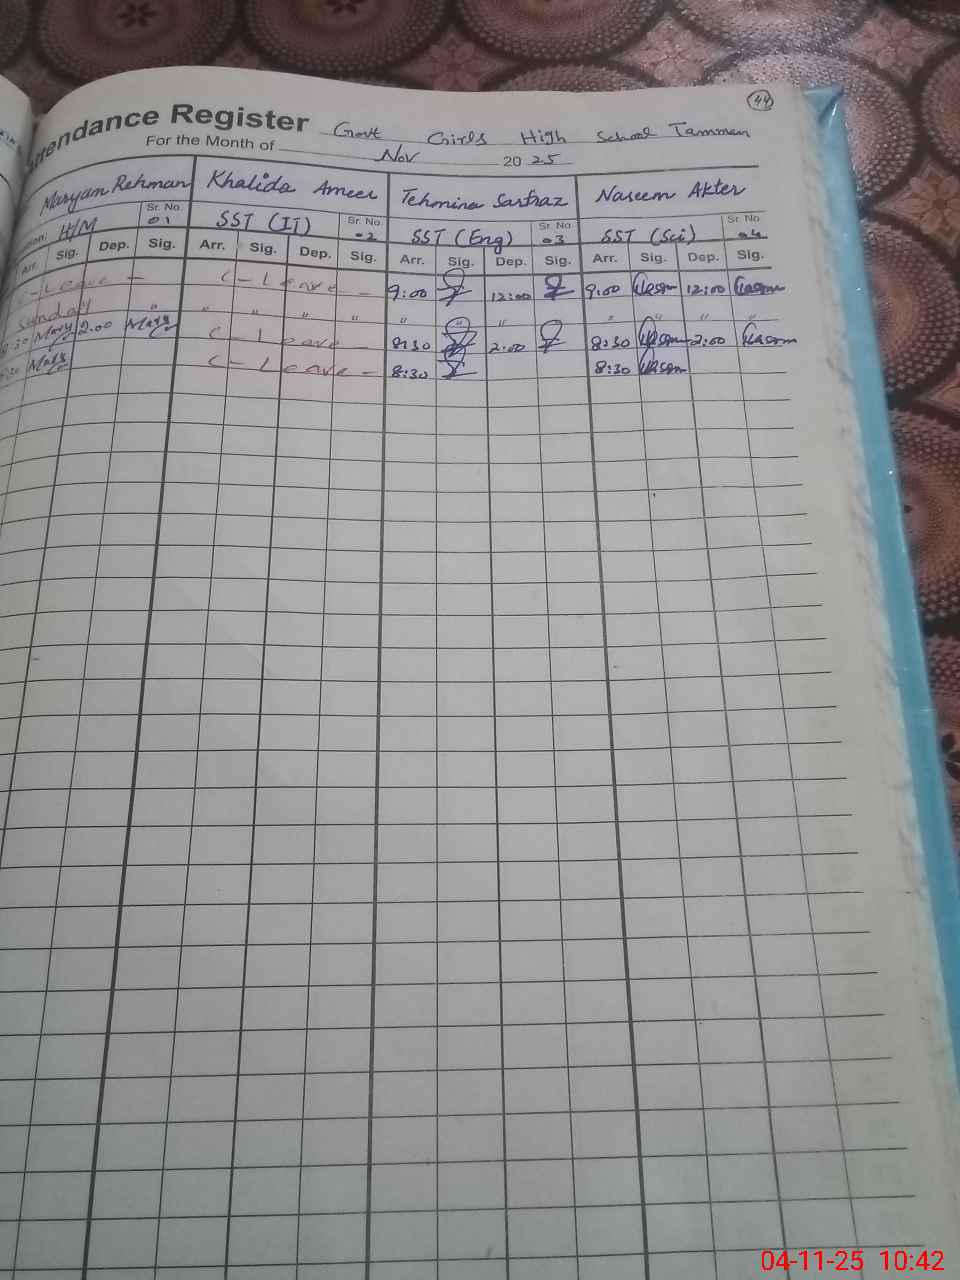 44
Attendance Register Govt Girls High School Tamman
For the Month of Nov 20 25
Maryam Rehman Khalida Ameer Tehmina Sarfraz Naseem Akter
H/M Sr. No. 01 SST (IT) Sr. No. 02 SST (Eng) Sr. No. 03 SST (Sci) Sr. No. 04
Arr. Sig. Dep. Sig. Arr. Sig. Dep. Sig. Arr. Sig. Dep. Sig. Arr. Sig. Dep. Sig.
C - Leave - C - Leave - 9:00 12:00 9:00 12:00
Sunday " " " " " " " " " " " "
8:30 Mary 2:00 Mary C - Leave - 8:30 2:00 8:30 2:00
8:30 Mary C - Leave - 8:30 8:30
04-11-25 10:42